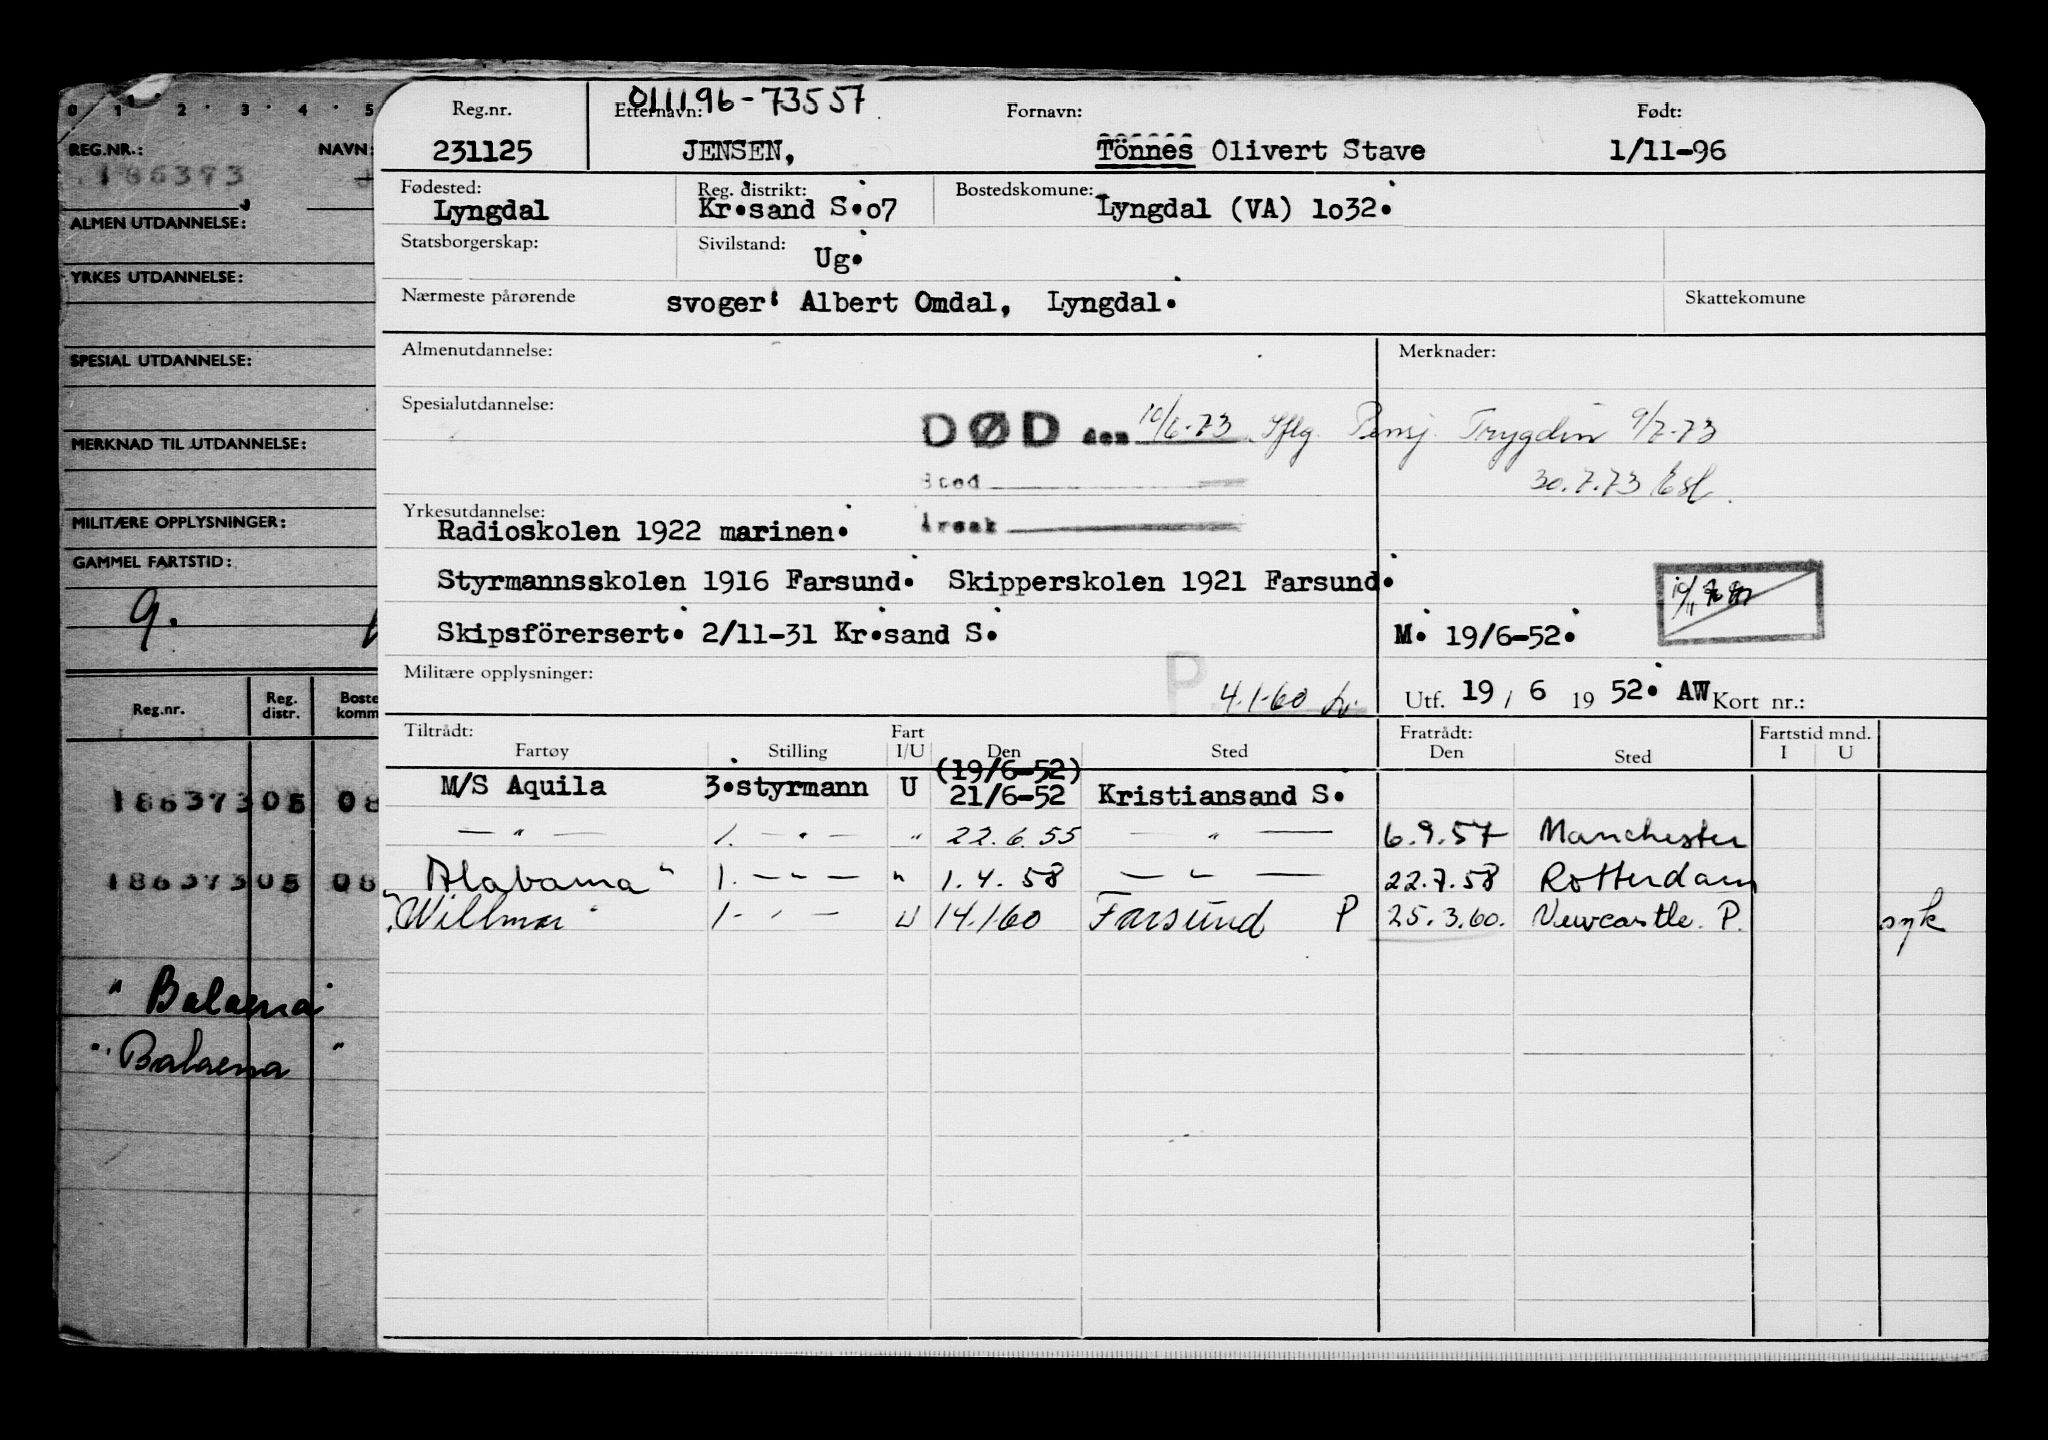 0 1 2 3 4 5
REG.NR.: NAVN:
186373
ALMEN UTDANNELSE:
YRKES UTDANNELSE:
SPESIAL UTDANNELSE:
MERKNAD TIL UTDANNELSE:
MILITÆRE OPPLYSNINGER:
GAMMEL FARTSTID:
9.
Reg.nr. Reg. distr. Boste komm
186373 05 08
186373 05 08
"Balaena"
"Balaena"
Reg.nr. Etternavn: 011196-73557 Fornavn: Født:
231125 JENSEN, Tönnes Olivert Stave 1/11-96
Fødested: Reg. distrikt: Bostedskomune:
Lyngdal Kr.sand S.o7 Lyngdal (VA) 1o32.
Statsborgerskap: Sivilstand: Ug.
Nærmeste pårørende svoger: Albert Omdal, Lyngdal. Skattekomune
Almenutdannelse: Merknader:
Spesialutdannelse:
DØD den 10/6-73 Iflg. Pensj. Trygden 9/7-73
Sted 30.7.73
Yrkesutdannelse: Årsak
Radioskolen 1922 marinen.
Styrmannsskolen 1916 Farsund. Skipperskolen 1921 Farsund.
Skipsförersert. 2/11-31 Kr.sand S. M. 19/6-52.
Militære opplysninger: P 4.1.60 Utf. 19 / 6 19 52. AW Kort nr.:
Tiltrådt: Fart Fratrådt: Fartstid mnd.
Fartøy Stilling I/U Den Sted Den Sted I U
(19/6-52)
M/S Aquila 3.styrmann U 21/6-52 Kristiansand S.
— " — 1. — " — " 22.6.55 — " — 6.9.57 Manchester
"Alabama" 1. — " — " 1.4.58 — " — 22.7.58 Rotterdam
"Willmar" 1 - " — U 14.1.60 Farsund P 25.3.60. Newcastle. P. syk